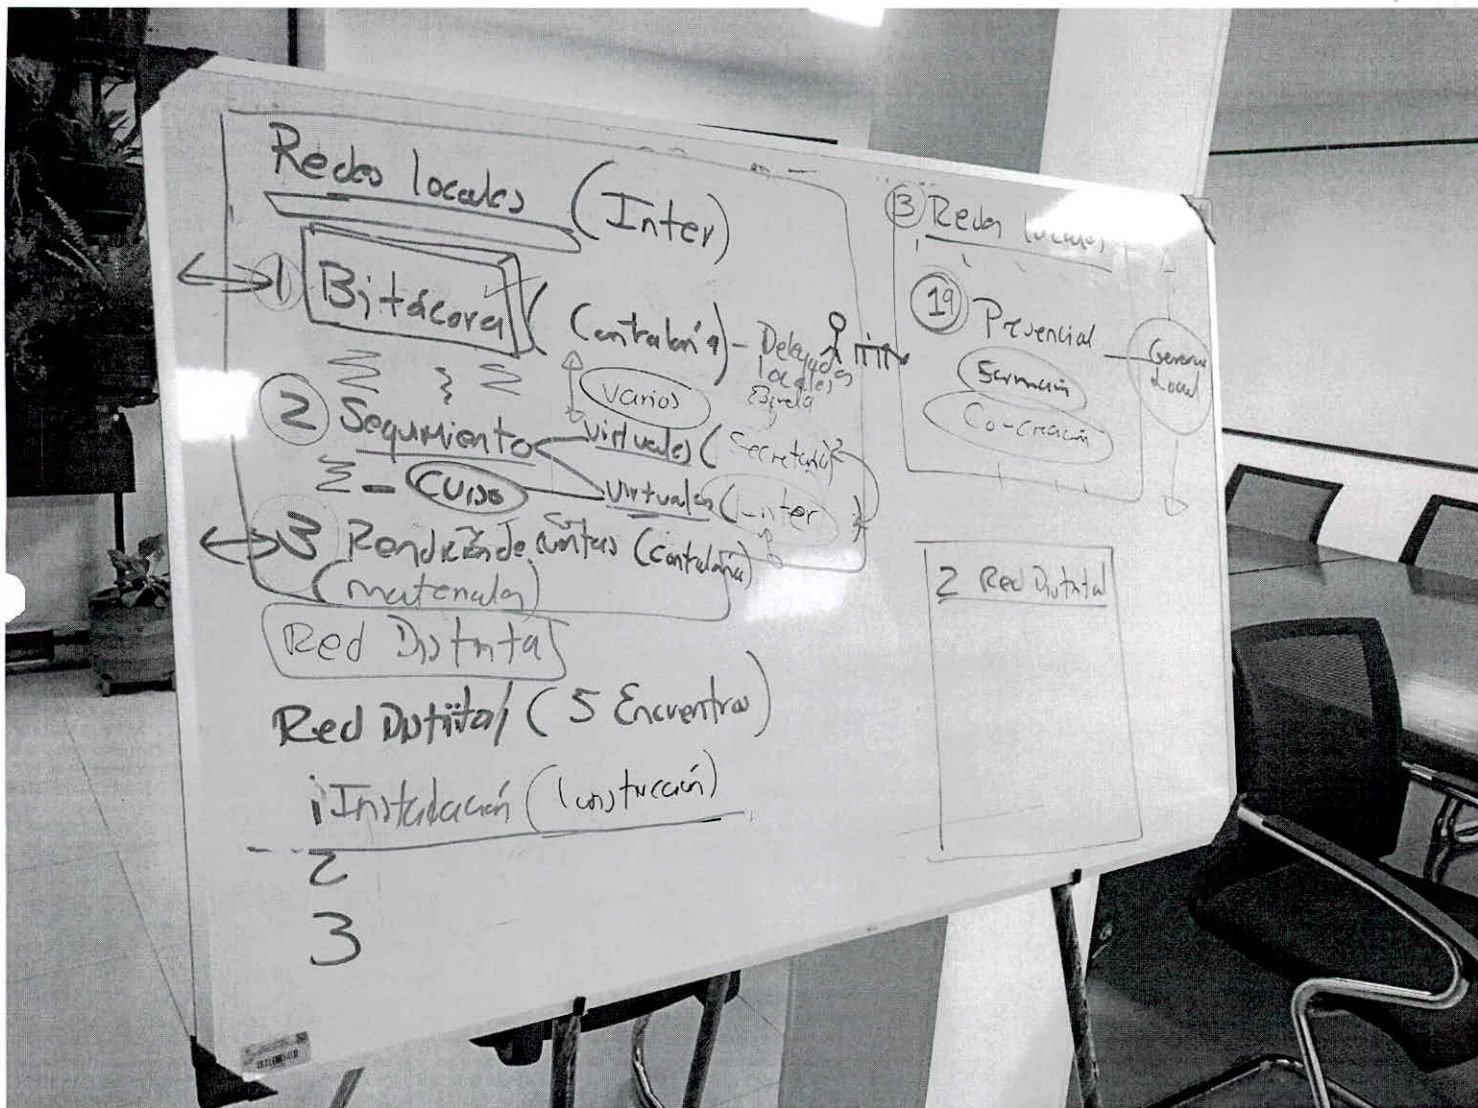 Redes locales (Inter)
1 Bitácora (Contraloría) - Delegados locales
Varios
2 Seguimiento virtuales (Secretaría)
- CUISO virtuales (Inter)
3 Rendición de cuentas (Contraloría)
(materiales)
Red Distrital
Red Distrital (5 Encuentros)
1 Instalación (Construcción)
2
3
3 Redes locales
19 Presencial
Co-creación
Local
2 Red Distrital